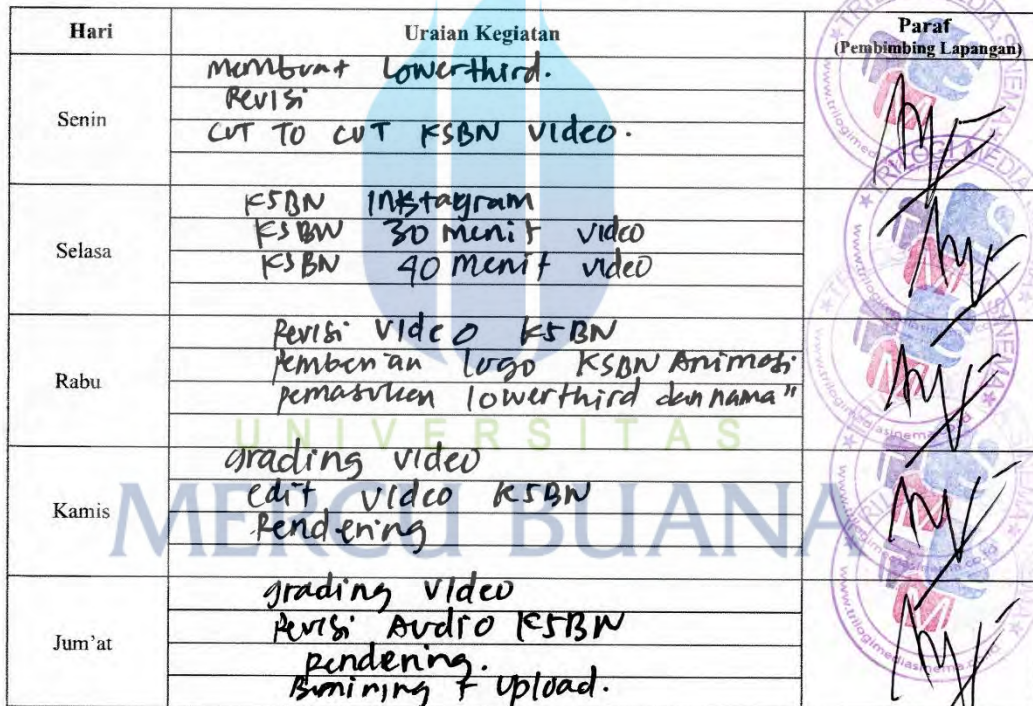 Hari Uraian Kegiatan Paraf
(Pembimbing Lapangan)
Senin
membuat Lowerthird.
Revisi
CUT TO CUT KSBN VIDEO.
Selasa
KSBN Instagram
KSBN 30 menit video
KSBN 40 menit video
Rabu
Revisi Video KSBN
pemberian logo KSBN Animasi
pemasukan lowerthird dan nama"
UNIVERSITAS
MERCU BUANA
Kamis
grading video
edit video KSBN
Rendering
Jum'at
grading video
Revisi Audio KSBN
rendering.
+ Upload.
TRILOGI MEDIA SINEMA